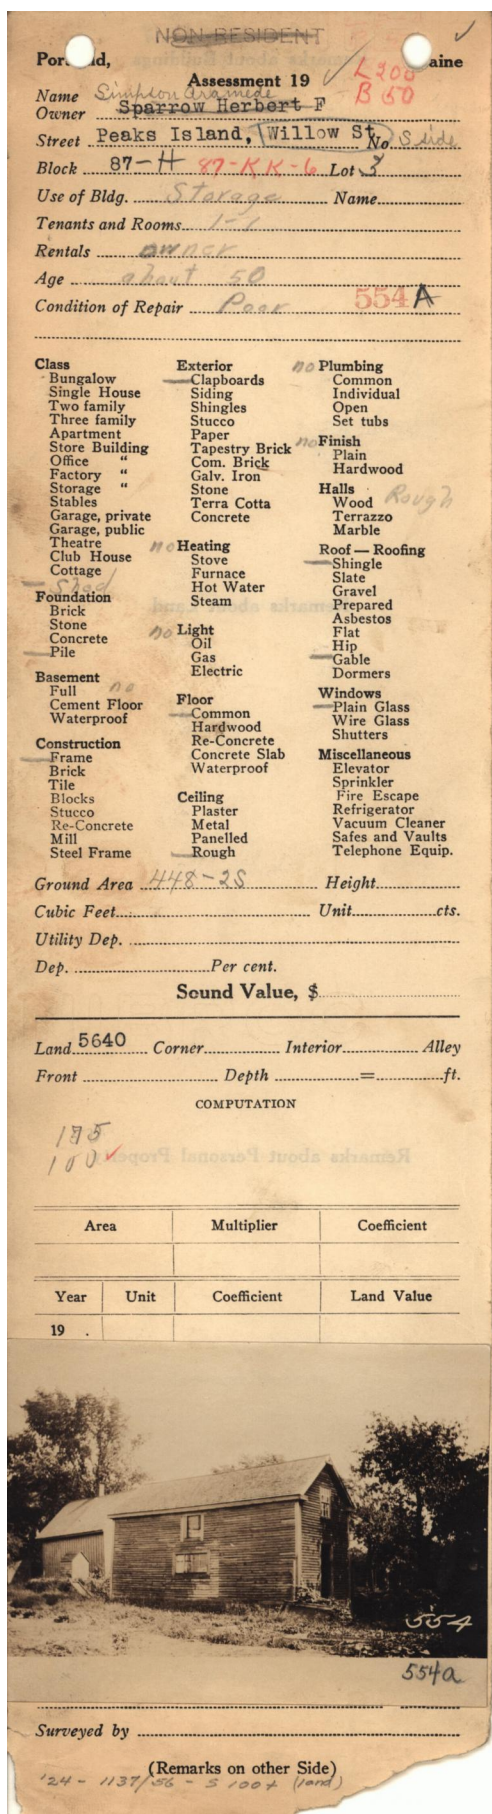 NON-RESIDENT
Portland, Maine
Assessment 19
L 200
B 50
Name Simpson Aramede
Owner Sparrow Herbert F
Street Peaks Island, Willow St. No. S side
Block 87-H 87-KK-6 Lot 3
Use of Bldg. Storage Name
Tenants and Rooms 1-1
Rentals owner
Age about 50
Condition of Repair Poor 554 A
Class
Bungalow
Single House
Two family
Three family
Apartment
Store Building
Office "
Factory "
Storage "
Stables
Garage, private
Garage, public
Theatre
Club House
Cottage
Shed
Foundation
Brick
Stone
Concrete
Pile
Basement
Full no
Cement Floor
Waterproof
Construction
Frame
Brick
Tile
Blocks
Stucco
Re-Concrete
Mill
Steel Frame
Exterior
Clapboards
Siding
Shingles
Stucco
Paper
Tapestry Brick
Com. Brick
Galv. Iron
Stone
Terra Cotta
Concrete
no Heating
Stove
Furnace
Hot Water
Steam
no Light
Oil
Gas
Electric
Floor
Common
Hardwood
Re-Concrete
Concrete Slab
Waterproof
Ceiling
Plaster
Metal
Panelled
Rough
no Plumbing
Common
Individual
Open
Set tubs
no Finish
Plain
Hardwood
Halls
Wood Rough
Terrazzo
Marble
Roof — Roofing
Shingle
Slate
Gravel
Prepared
Asbestos
Flat
Hip
Gable
Dormers
Windows
Plain Glass
Wire Glass
Shutters
Miscellaneous
Elevator
Sprinkler
Fire Escape
Refrigerator
Vacuum Cleaner
Safes and Vaults
Telephone Equip.
Ground Area 448-2S Height
Cubic Feet Unit cts.
Utility Dep.
Dep. Per cent.
Sound Value, $
Land 5640 Corner Interior Alley
Front Depth = ft.
COMPUTATION
175
100
Remarks about Personal Property
Area Multiplier Coefficient
Year Unit Coefficient Land Value
19 .
554
554a
Surveyed by
(Remarks on other Side)
'24 - 1137/56 - S 100+ (land)